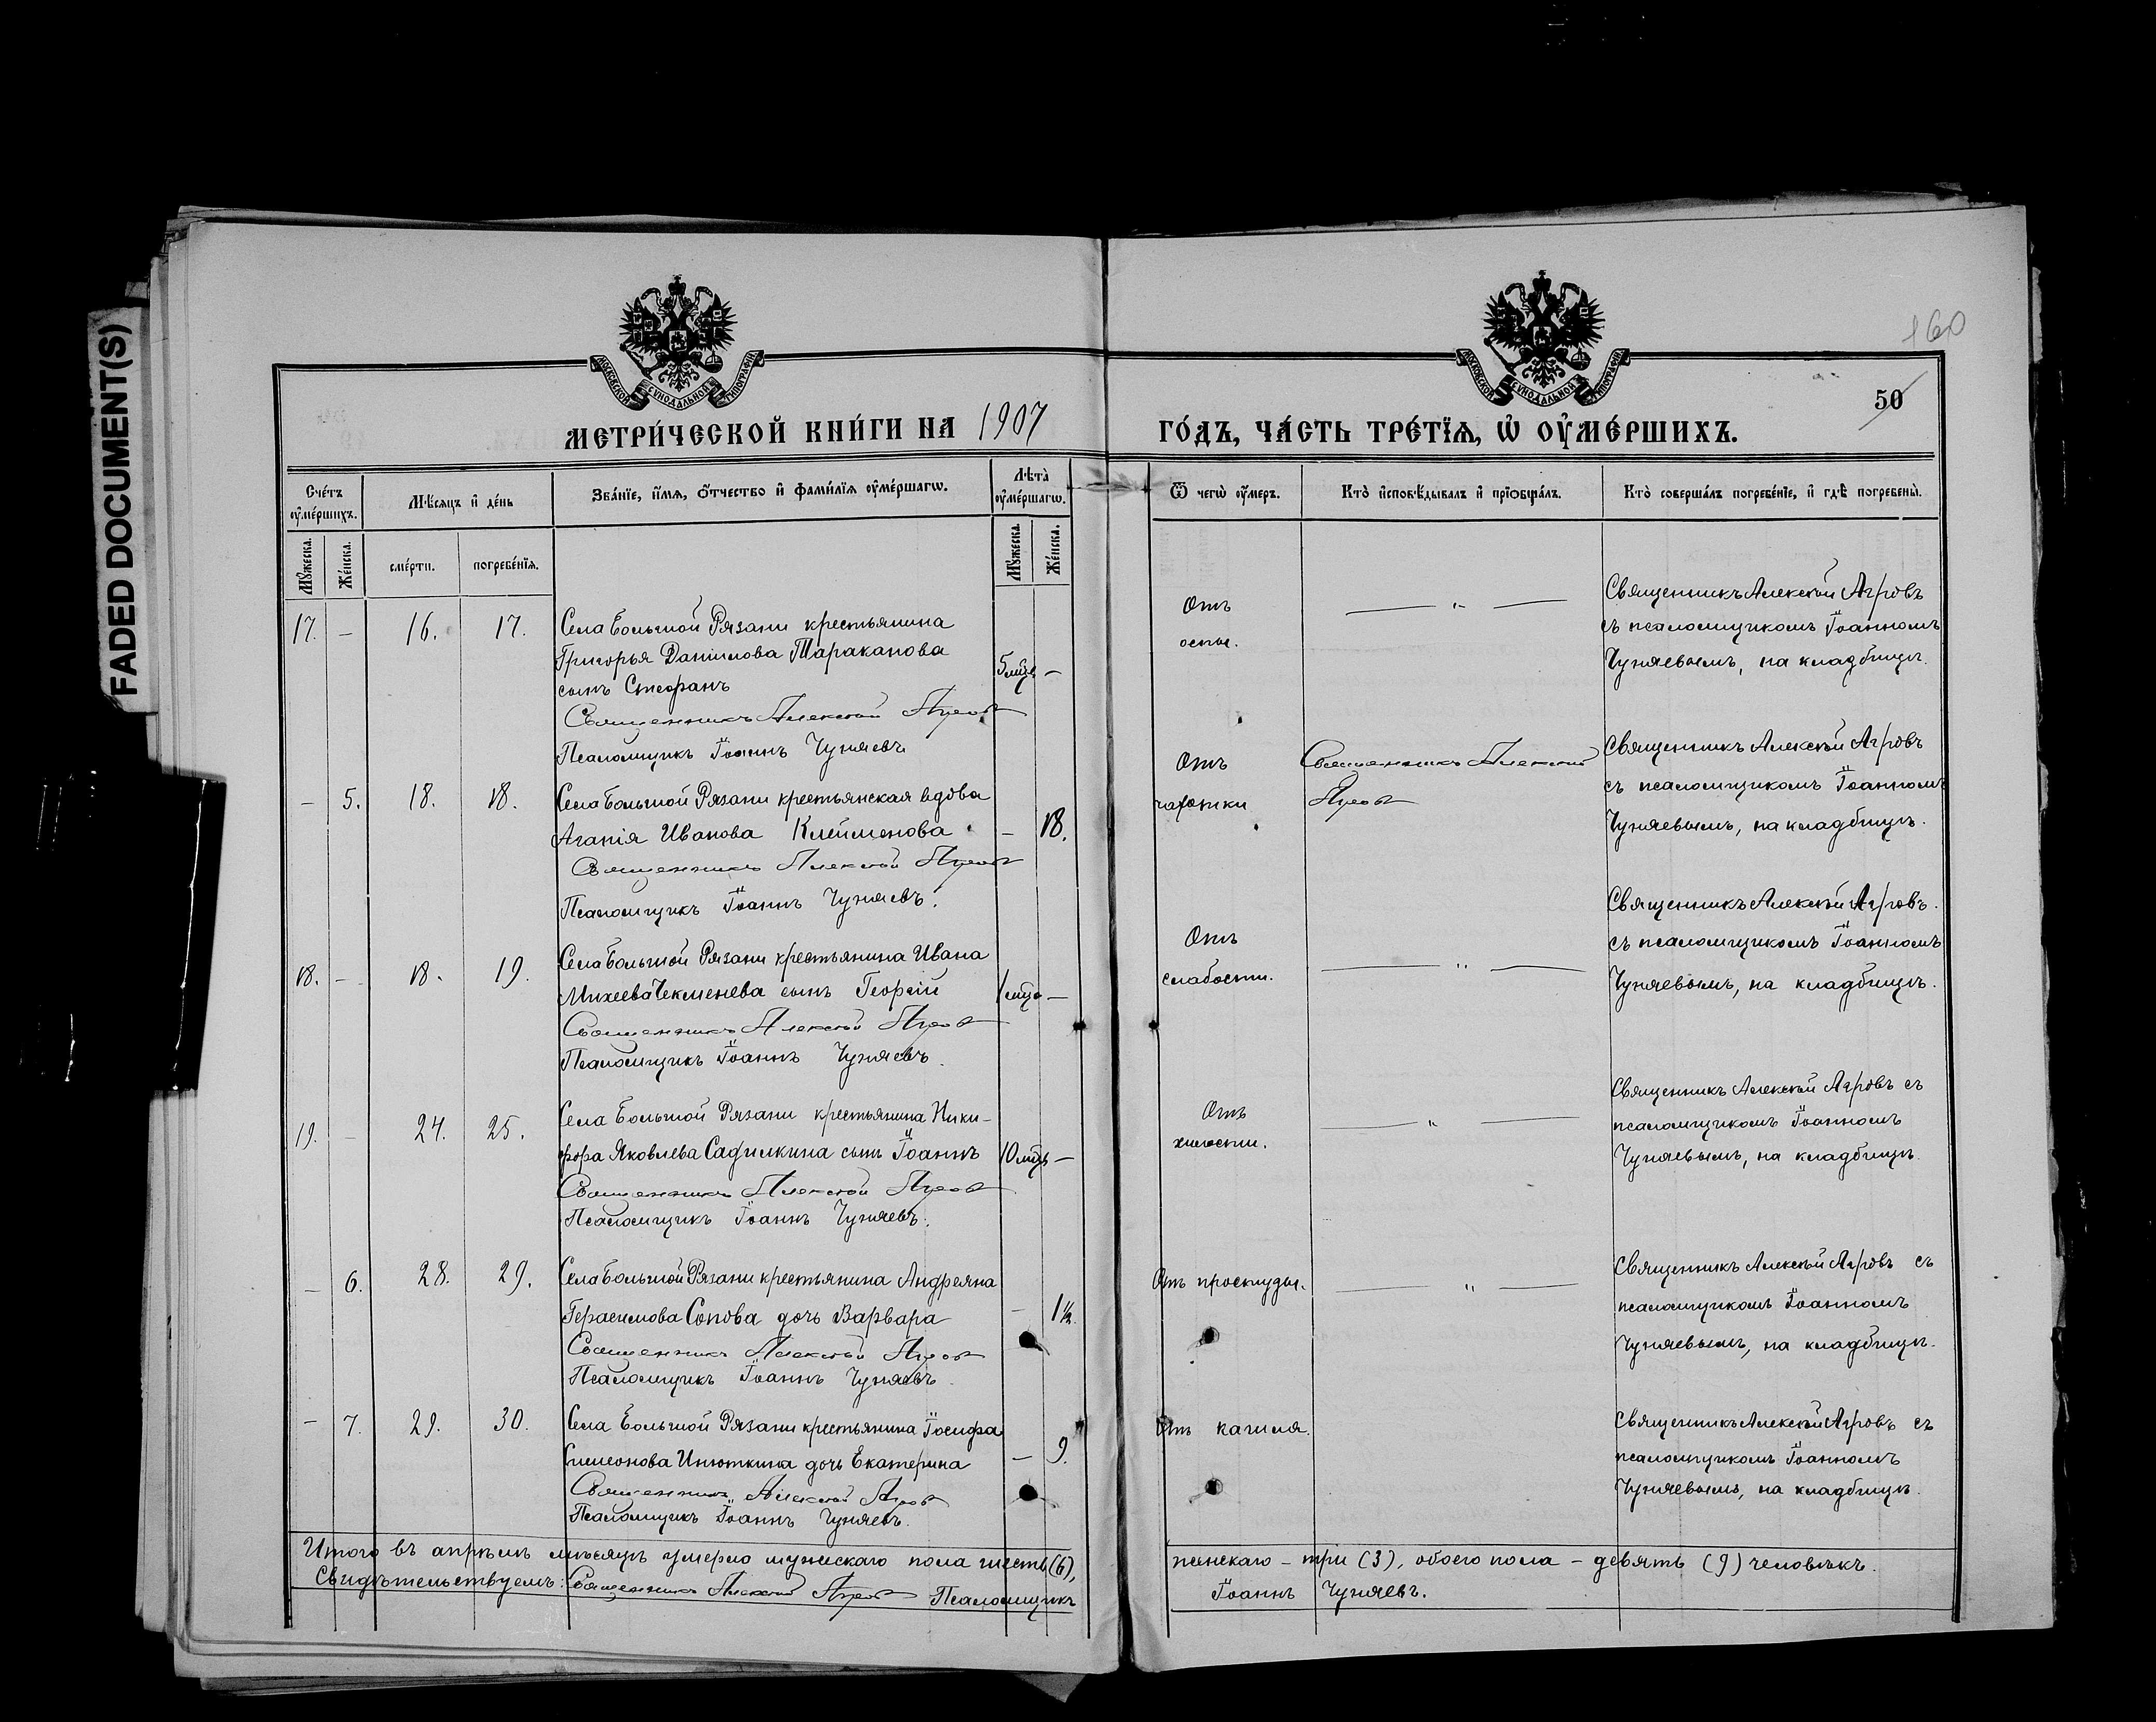 FADED DOCUMENT(S)
160
50
МОСКОВСКОЙ СѴНОДАЛЬНОЙ ТИПОГРАФІИ
МОСКОВСКОЙ СѴНОДАЛЬНОЙ ТИПОГРАФІИ
МЕТРИ́ЧЕСКОЙ КНИ́ГИ НА 1907 ГО́ДЪ, ЧА́СТЬ ТРЕ́ТЇѦ, Ѡ҆ ОУ҆МЕ́РШИХЪ.
Сче́тъ оу҆ме́ршихъ.
Мѣ́сяцъ и҆ де́нь
Зва́нїе, и҆́мѧ, ѻ҆́тчество и҆ фами́лїѧ оу҆ме́ршагѡ.
Лѣта̀ оу҆ме́ршагѡ.
Ѿ чегѡ̀ оу҆́меръ.
Кто̀ и҆сповѣ́дывалъ и҆ прїѡбща́лъ.
Кто̀ соверша́лъ погребе́нїе, и҆ гдѣ̀ погребены̀.
Му́жеска.
Же́нска.
сме́рти.
погребе́нїѧ.
Му́жеска.
Же́нска.
17. – 16. 17.
Села Большой Рязани крестьянина
Григорья Данилова Тараканова
сынъ Стефанъ
5 мцъ –
Священникъ Алексѣй Агровъ
Псаломщикъ Іоаннъ Чуняевъ
Отъ
оспы.
— „ —
Священникъ Алексѣй Агровъ
съ псаломщикомъ Іоанномъ
Чуняевымъ, на кладбищѣ.
– 5. 18. 18.
Села Большой Рязани крестьянская вдова
Агапія Иванова Клейменова
– 18.
Священникъ Алексѣй Агровъ
Псаломщикъ Іоаннъ Чуняевъ.
Отъ
чахотки
Священникъ Алексѣй
Агровъ
Священникъ Алексѣй Агровъ
съ псаломщикомъ Іоанномъ
Чуняевымъ, на кладбищѣ.
18. – 18. 19.
Села Большой Рязани крестьянина Ивана
Михеева Чекменева сынъ Георгій
1 мцъ –
Священникъ Алексѣй Агровъ
Псаломщикъ Іоаннъ Чуняевъ.
Отъ
слабости.
— „ —
Священникъ Алексѣй Агровъ.
съ псаломщикомъ Іоанномъ
Чуняевымъ, на кладбищѣ.
19. – 24. 25.
Села Большой Рязани крестьянина Ники-
фора Яковлева Садилкина сынъ Іоаннъ
10 мцъ –
Священникъ Алексѣй Агровъ
Псаломщикъ Іоаннъ Чуняевъ.
Отъ
хилости.
— „ —
Священникъ Алексѣй Агровъ съ
псаломщикомъ Іоанномъ
Чуняевымъ, на кладбищѣ.
– 6. 28. 29.
Села Большой Рязани крестьянина Андреяна
Герасимова Сопова дочь Варвара
– 1½.
Священникъ Алексѣй Агровъ
Псаломщикъ Іоаннъ Чуняевъ.
Отъ простуды.
— „ —
Священникъ Алексѣй Агровъ съ
псаломщикомъ Іоанномъ
Чуняевымъ, на кладбищѣ.
– 7. 29. 30.
Села Большой Рязани крестьянина Іосифа
Симеонова Инюткина дочь Екатерина
– 9.
Священникъ Алексѣй Агровъ
Псаломщикъ Іоаннъ Чуняевъ.
Отъ кашля.
Священникъ Алексѣй Агровъ съ
псаломщикомъ Іоанномъ
Чуняевымъ, на кладбищѣ.
Итого въ апрѣлѣ мѣсяцѣ умерло мужескаго пола шесть (6), женскаго – три (3), обоего пола – девять (9) человѣкъ.
Свидѣтельствуемъ: Священникъ Алексѣй Агровъ Псаломщикъ Іоаннъ Чуняевъ.